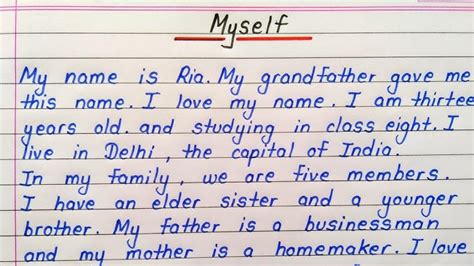 Myself
My name is Ria. My grandfather gave me
this name. I love my name. I am thirtee
years old. and studying in class eight. I
live in Delhi, the capital of India.
In my family, we are five members.
I have an elder sister and a younger
brother. My father is a businessman
and my mother is a homemaker. I love